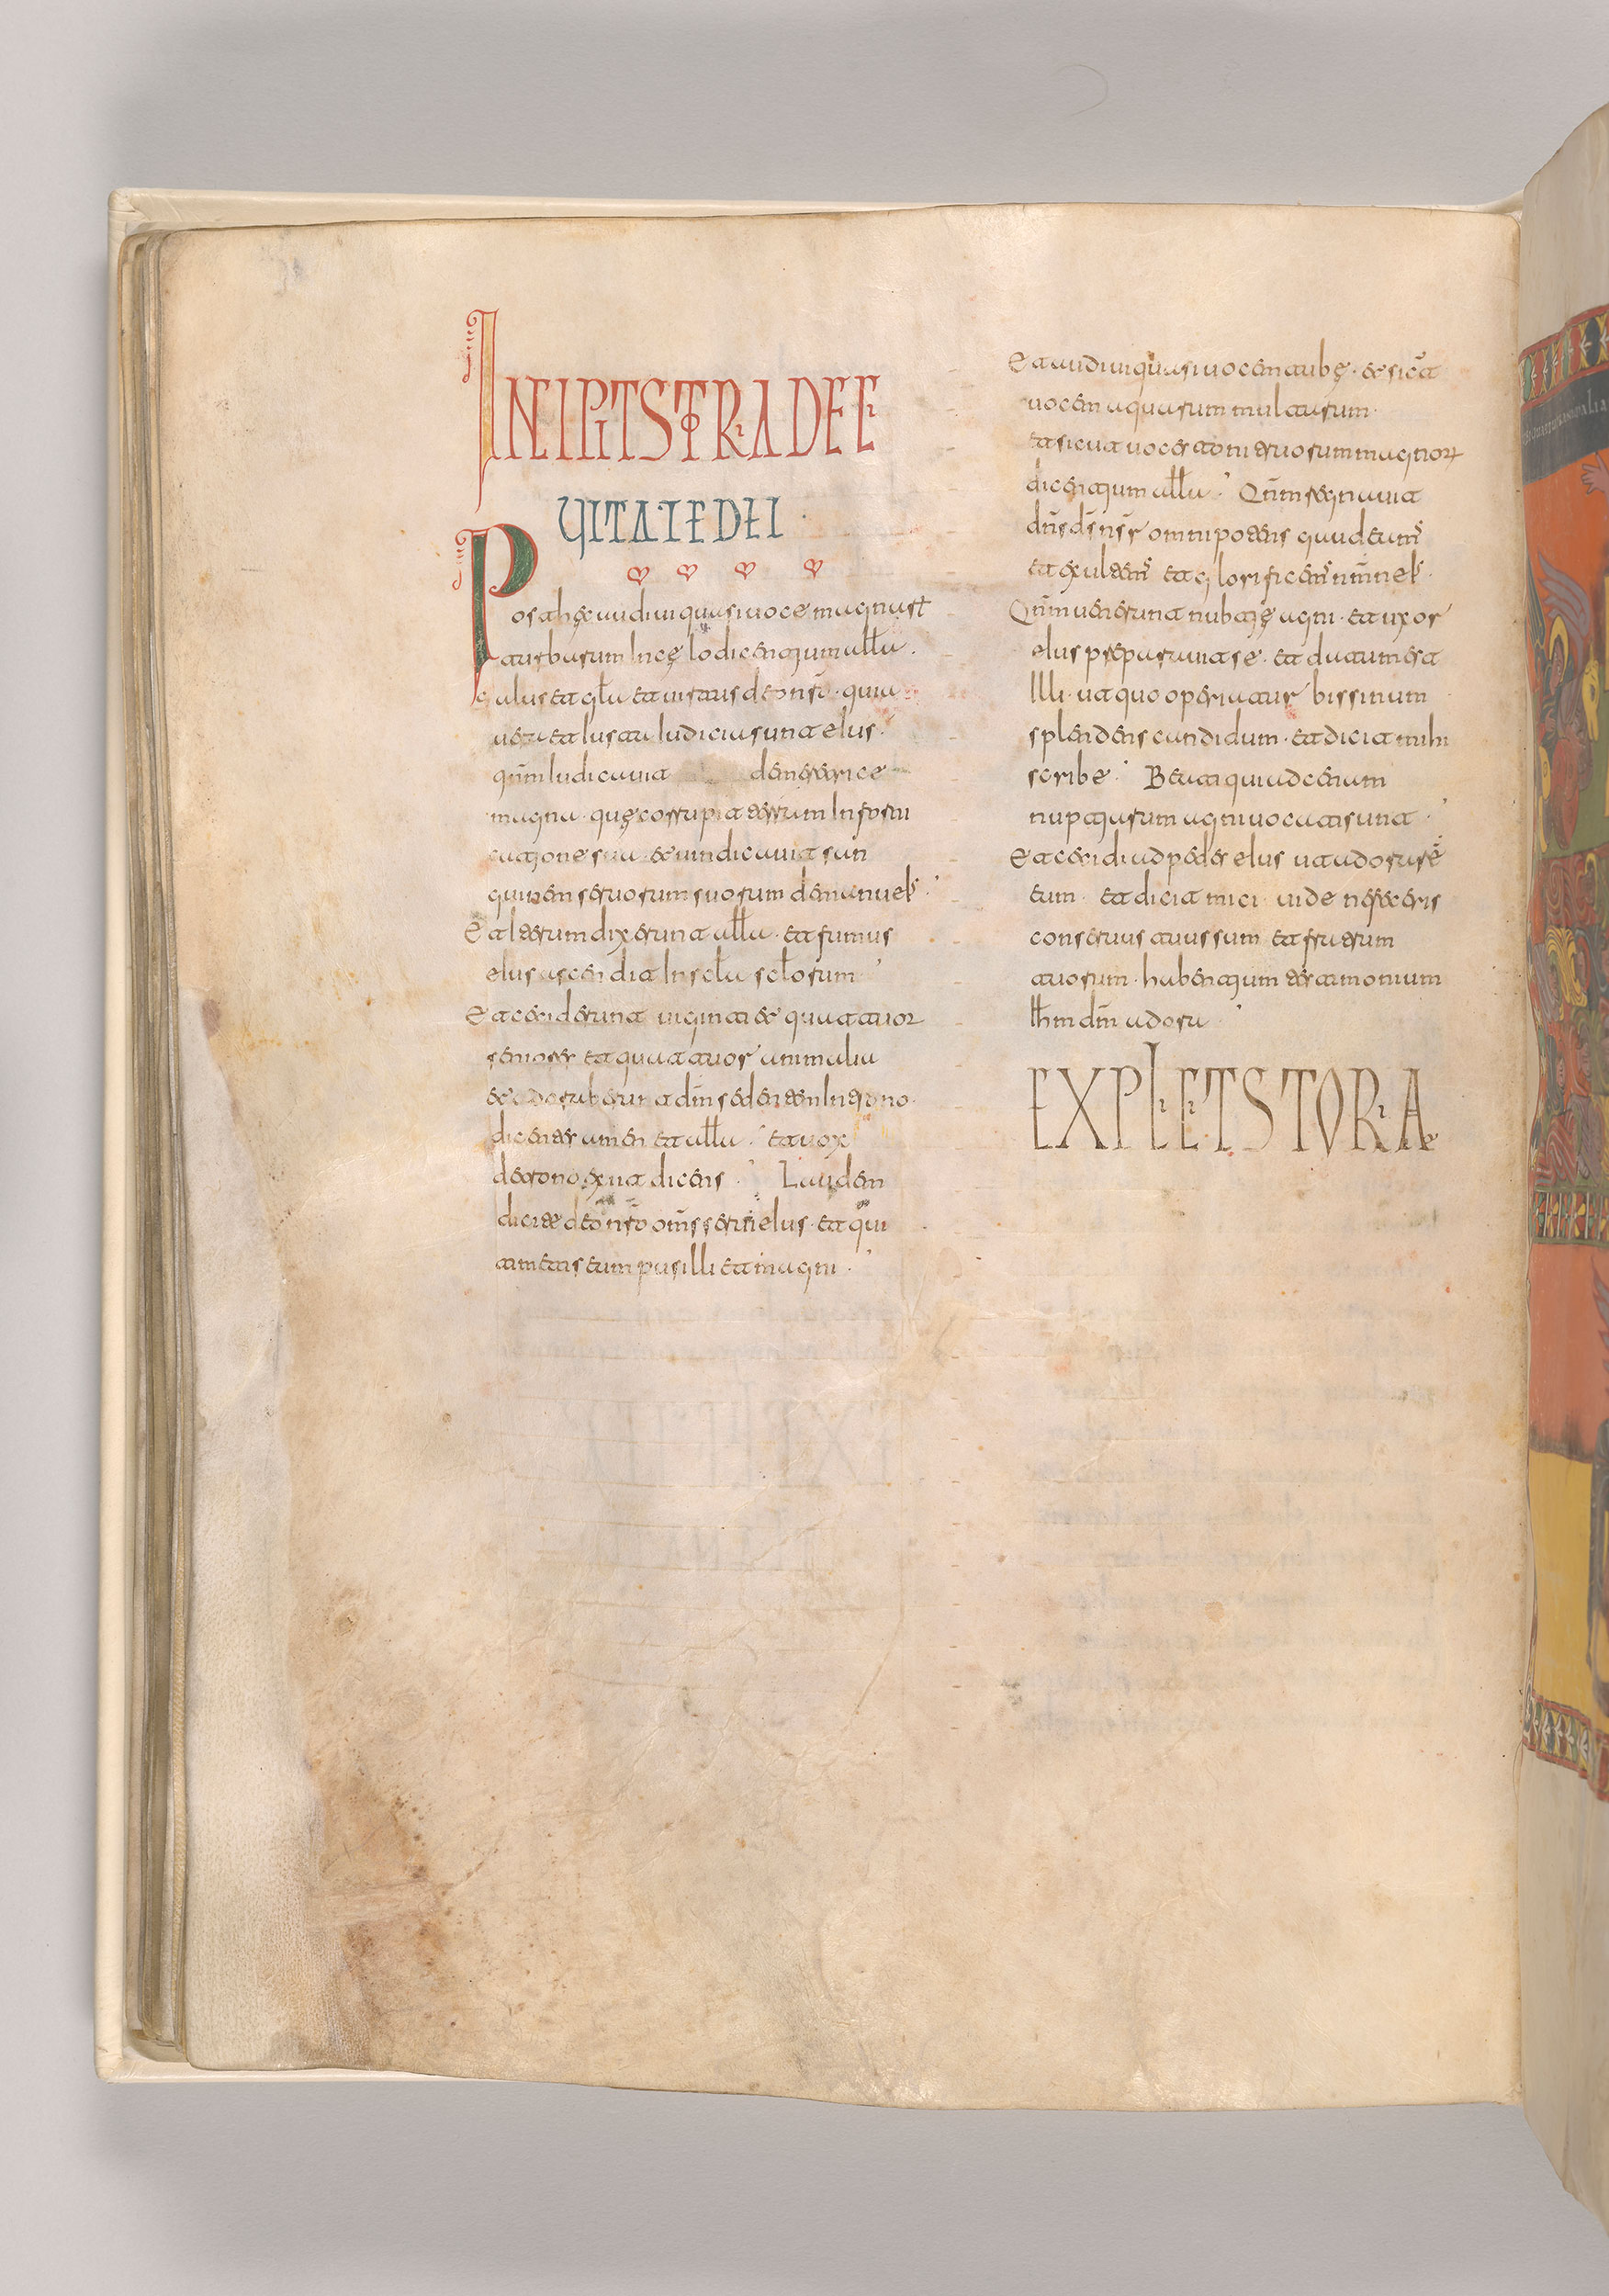 INCIPIT STORIA DE CI
VITATE DEI
Post hęc audiui quasi uoce magna
turbarum In cęlo dicentium allā.
salus et glā et uirtus deo nsō. quia
uera et Iusta Iudicia sunt eIus.
qnm̄ Iudicauit de meretrice
magna. quę corrupit terram In forni
catione sua et uindicauit san
guinem seruorum suorum de manu eIs.
Et Iterum dixerunt allā. et fumus
eIus ascendit In sclā sclorum
Et ceciderunt uiginti et quattuor
seniores et quattuor animalia
et adoraberunt dm̄ sedentem In trono.
dicentes amen et allā. et uox
de trono exiuit dicens. Laudem
dicite deo nsō oms̄ serui eIus. et qui
timetis eum pusilli et magni.
Et audiui quasi uocem tubę. et sicut
uocem aquarum multarum.
et sicut uoces tonitruorum magnor
dicentium allā. Qnm̄ regnauit
dns̄ ds̄ nsr̄ omnipotens gaudeams
et exultems et glorificems nmn̄ eIs.
Qnm̄ uenerunt nubtię agni. et uxor
eIus pręparauit se. et datum est
Illi. ut quo operiatur bissinum
splendens candidum. et dicit mihi
scribe. Beati qui ad cenam
nuptiarum agni uocati sunt.
Et cecidi ad pedes eIus ut adorarē
eum. et dicit mici. uide ne feceris
conseruus tuus sum et fratrum
tuorum. habentium testimonium
Ihm dm̄ adora
EXPLICIT STORIA